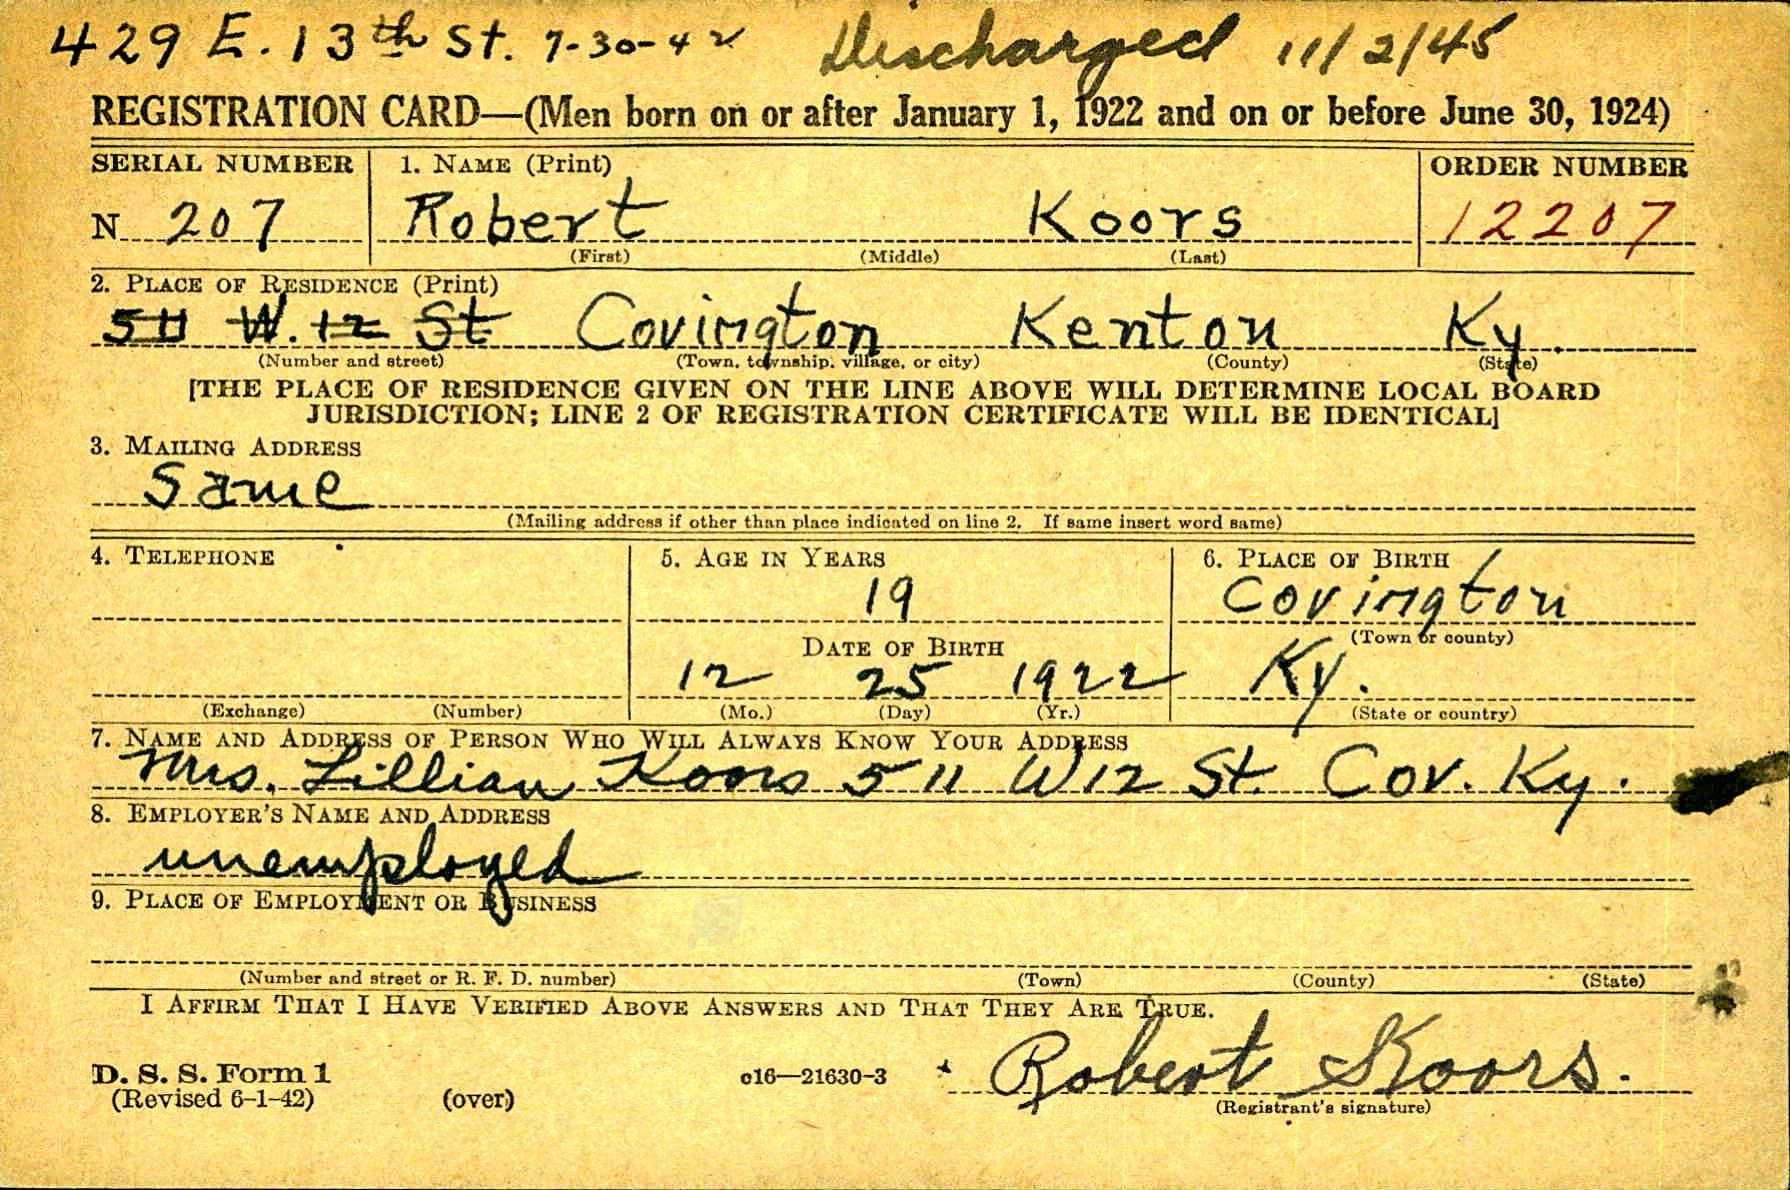 429 E. 13th St. 7-30-42 Discharged 11/2/45
REGISTRATION CARD—(Men born on or after January 1, 1922 and on or before June 30, 1924)
SERIAL NUMBER 1. NAME (Print) ORDER NUMBER
N 207 Robert Koors 12207
(First) (Middle) (Last)
2. PLACE OF RESIDENCE (Print)
511 W. 12 St Covington Kenton Ky.
(Number and street) (Town, township, village, or city) (County) (State)
[THE PLACE OF RESIDENCE GIVEN ON THE LINE ABOVE WILL DETERMINE LOCAL BOARD
JURISDICTION; LINE 2 OF REGISTRATION CERTIFICATE WILL BE IDENTICAL]
3. MAILING ADDRESS
Same
(Mailing address if other than place indicated on line 2. If same insert word same)
4. TELEPHONE 5. AGE IN YEARS 6. PLACE OF BIRTH
19 Covington
DATE OF BIRTH (Town or county)
12 25 1922 Ky.
(Exchange) (Number) (Mo.) (Day) (Yr.) (State or country)
7. NAME AND ADDRESS OF PERSON WHO WILL ALWAYS KNOW YOUR ADDRESS
Mrs. Lillian Koors 511 W 12 St. Cov. Ky.
8. EMPLOYER'S NAME AND ADDRESS
unemployed
9. PLACE OF EMPLOYMENT OR BUSINESS
(Number and street or R. F. D. number) (Town) (County) (State)
I AFFIRM THAT I HAVE VERIFIED ABOVE ANSWERS AND THAT THEY ARE TRUE.
D. S. S. Form 1 c16—21630-3 Robert Koors.
(Revised 6-1-42) (over) (Registrant's signature)